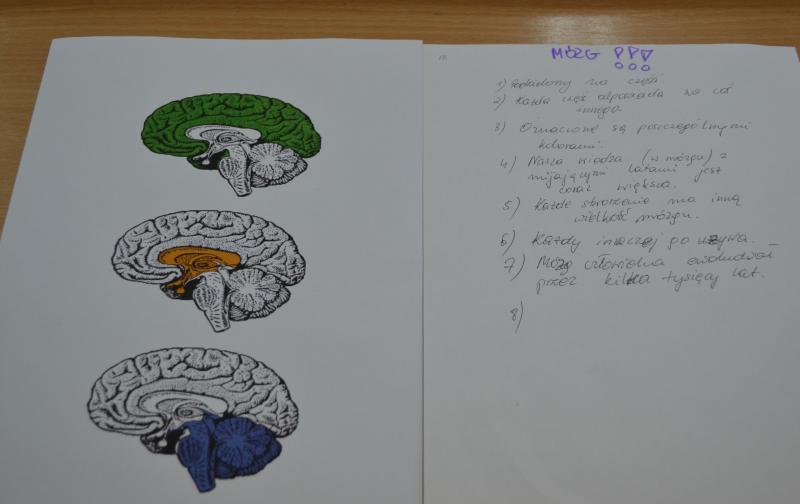 MÓZG !!!
1) Podzielony na część
2) Każda część odpowiada za coś
innego
3) Oznaczone są poszczególnymi
kolorami.
4) Nasza wiedza (w mózgu) z
mijającymi latami jest
coraz większa.
5) Każde stworzenie ma inną
wielkość mózgu.
6) Każdy inaczej go używa.
7) Mózg człowieka ewoluował
przez kilka tysięcy lat.
8)